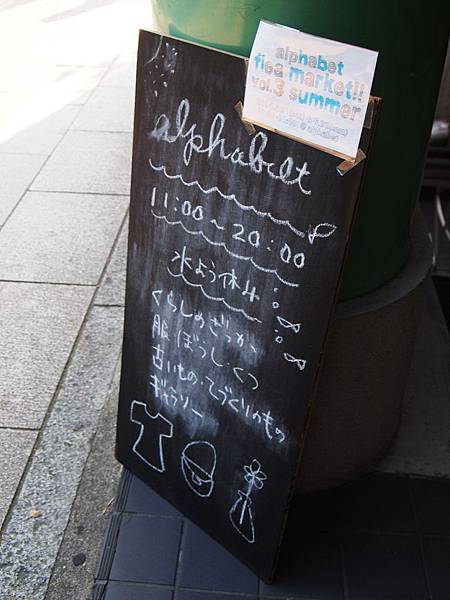 alphabet
flea market!!
vol.3 summer
alphabet
11:00〜20:00
水よう休み
くらしのざっか、
服・ぼうし・くつ
古いもの・てづくりのもの
ギャラリー